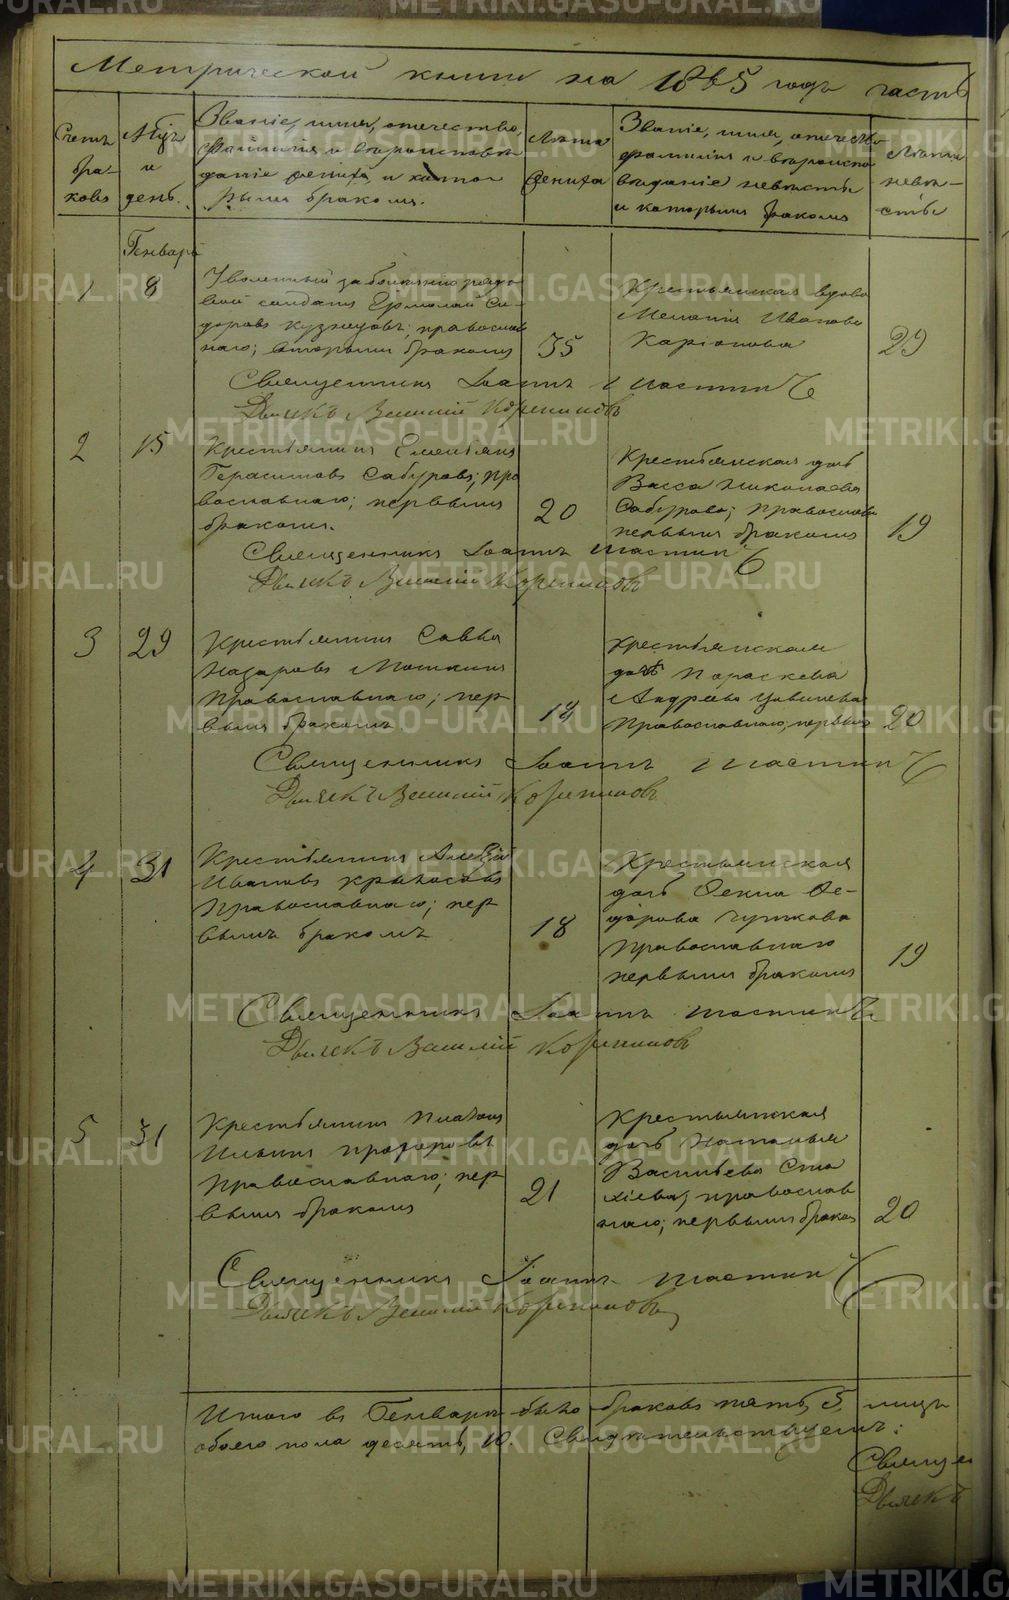 Метрической книги на 1885 годъ часть
Счетъ бра-ковъ
Мѣсяцъ и день.
Званіе, имя, отечество,
фамилія и вѣроисповѣ
даніе жениха, и кото
рымъ бракомъ.
Лѣта жениха
Званіе, имя, отечество
фамилія и вѣроиспо
вѣданіе невѣсты
и которымъ бракомъ
Лѣта невѣ-сты
Генварь
1
8
Уволенный за болѣзнію рядо
вой солдатъ Ермолай Си-
доровъ Кузнецовъ; православ
наго; вторымъ бракомъ
35
Крестьянская вдова
Меланія Иванова
29
Священникъ Іоаннъ
Дьячекъ Василій
2
15
Крестьянинъ Емельянъ
Герасимовъ Сабуровъ; пра
вославнаго; первымъ
бракомъ.
20
Крестьянская дочь
Васса Николаева
Сабурова; православн
первымъ бракомъ
19
Священникъ Іоаннъ
Дьячекъ Василій
3
29
Крестьянинъ Савва
Назаровъ Мошкинъ
Православнаго; пер
вымъ бракомъ
18
Крестьянская
дочь Параскева
Андреева
Православнаго, первымъ
20
Священникъ Іоаннъ
Дьячекъ Василій
4
31
Крестьянинъ Алексѣй
Ивановъ Кривосовъ
Православнаго; пер
вымъ бракомъ
18
Крестьянская
дочь Фекла Фе-
дорова
Православнаго
первымъ бракомъ
19
Священникъ Іоаннъ
Дьячекъ Василій
5
31
Крестьянинъ Платонъ
Ильинъ Прохоровъ
Православнаго; пер
вымъ бракомъ
21
Крестьянская
дочь Наталья
Васильева
православ
наго; первымъ бракомъ
20
Священникъ Іоаннъ
Дьячекъ Василій
Итого въ Генварѣ было браковъ пять, 5, лицъ
обоего пола десять, 10. Свидѣтельствуемъ:
Священ
Дьячекъ
METRIKI.GASO-URAL.RU